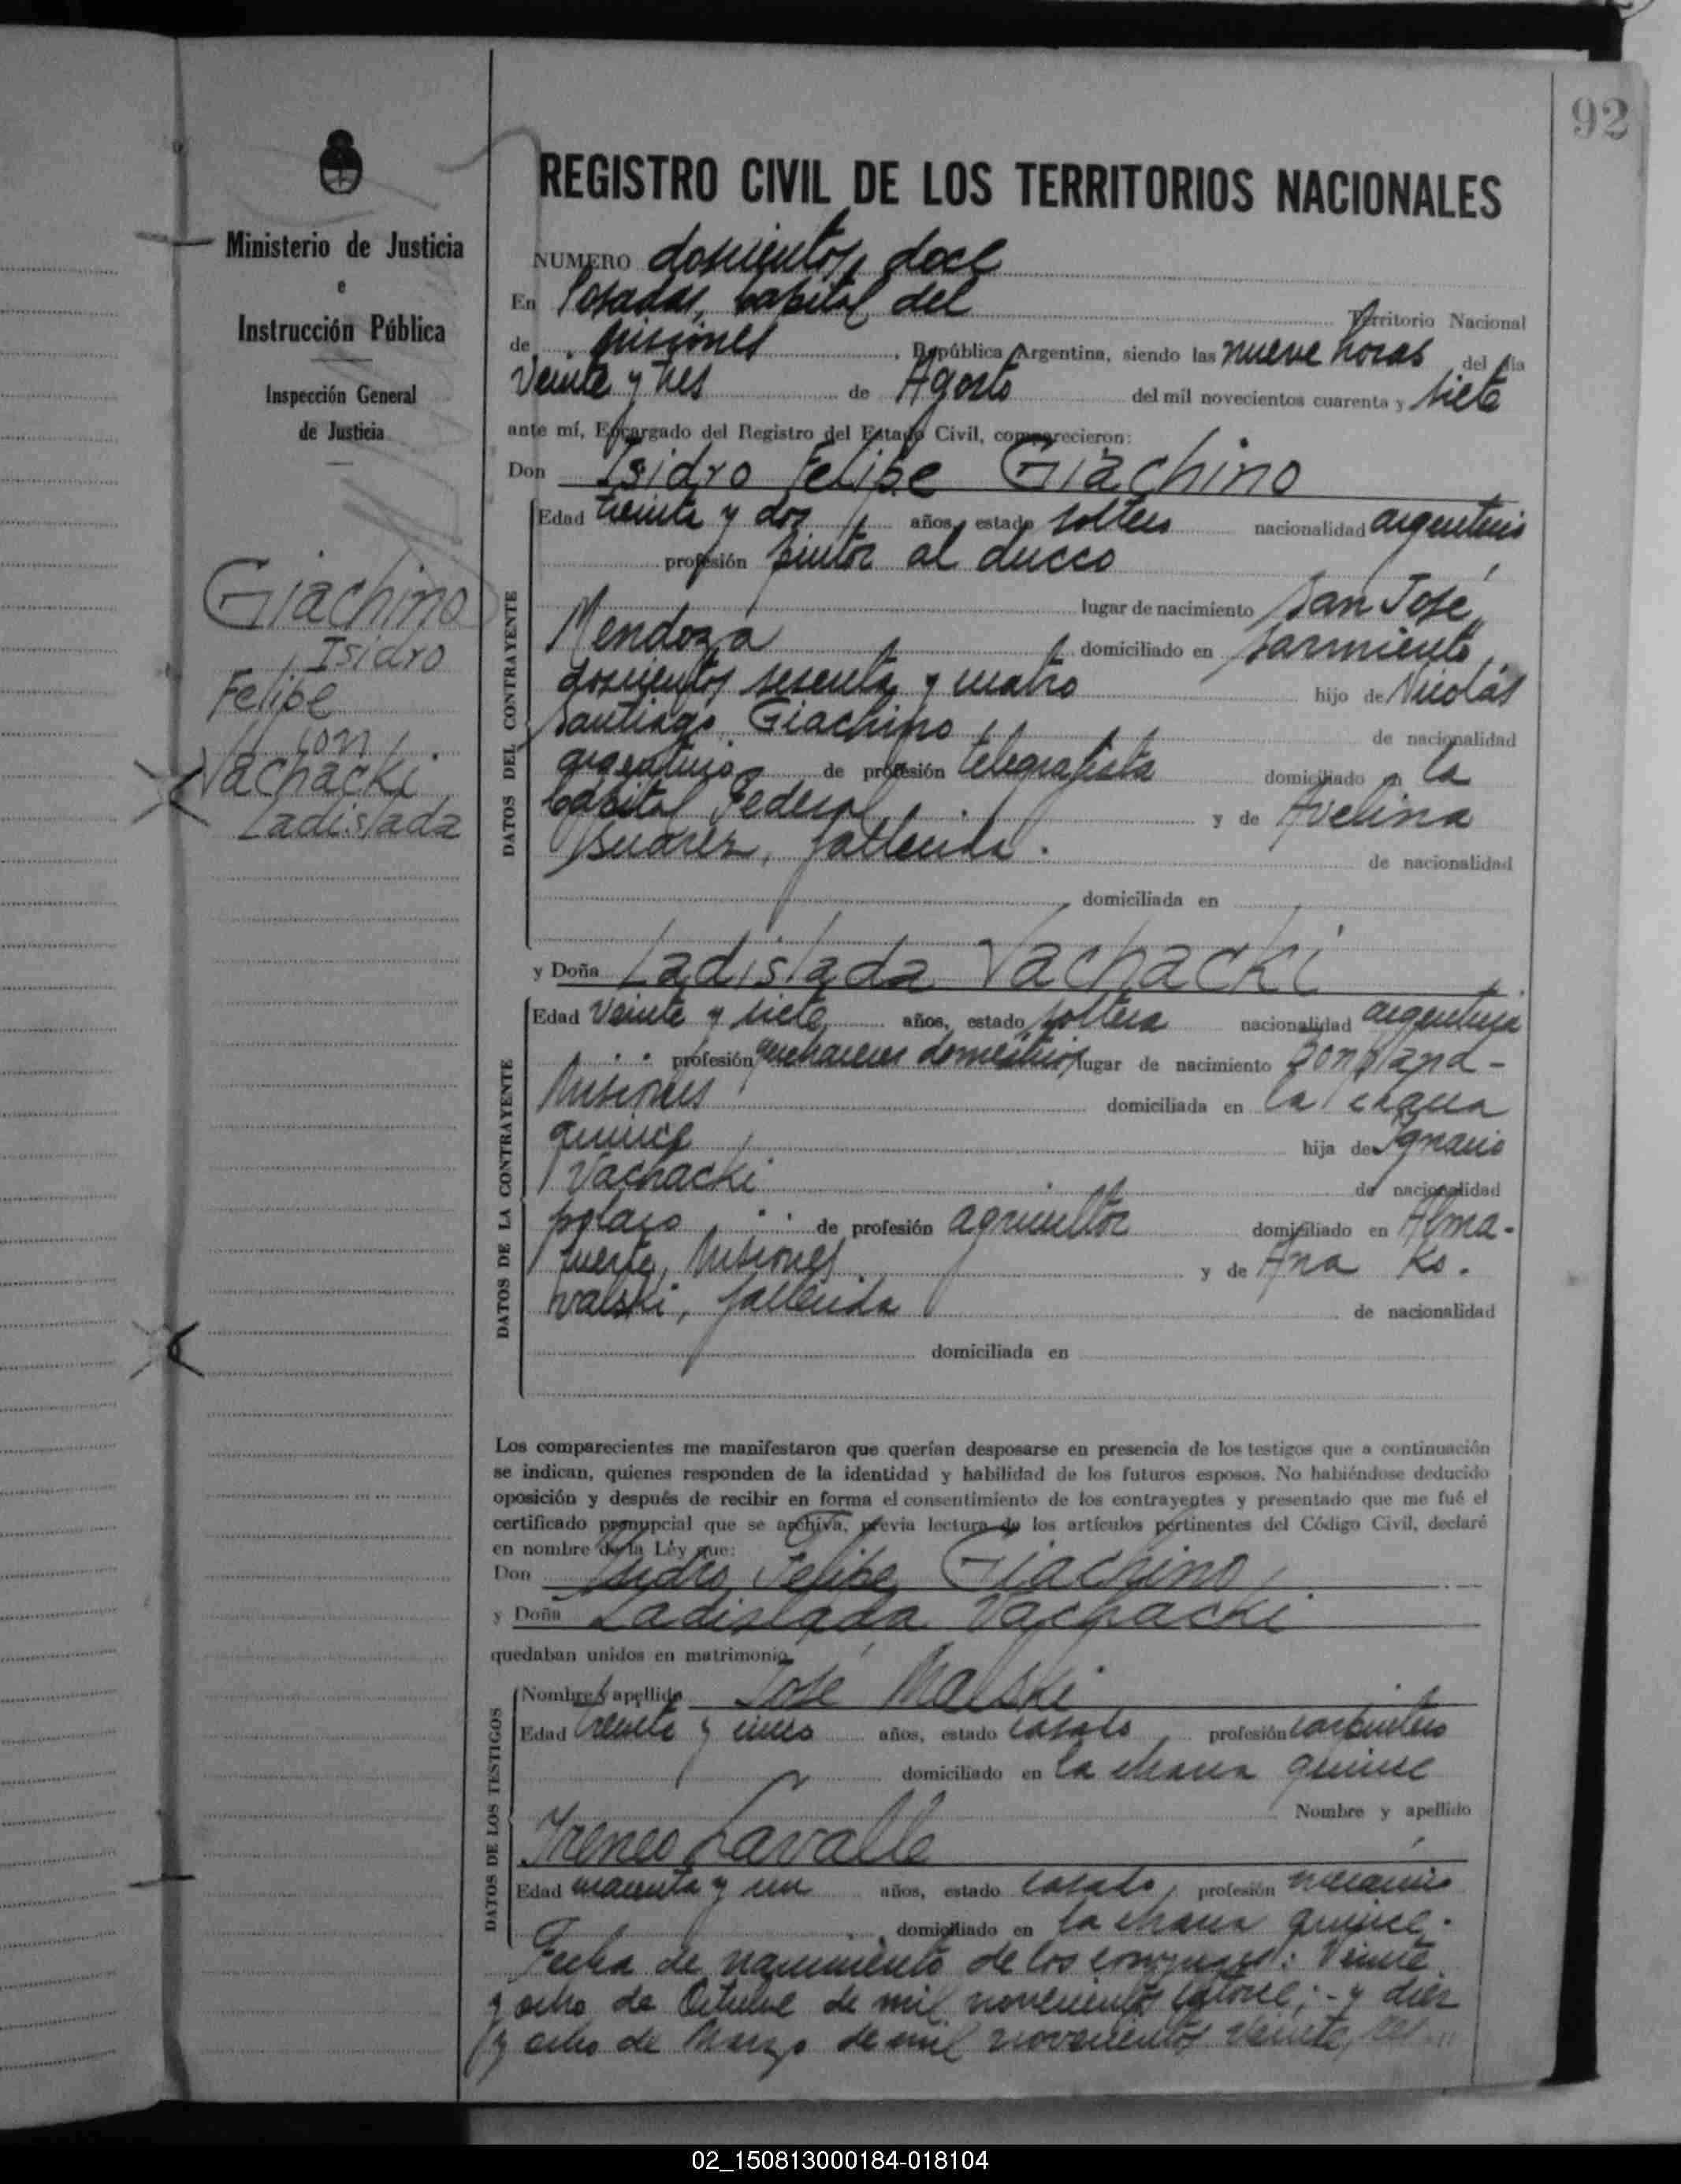 92
REGISTRO CIVIL DE LOS TERRITORIOS NACIONALES
Ministerio de Justicia
e
Instrucción Pública
Inspección General
de Justicia
Giachino
Isidro
Felipe
con
Vachacki
Ladislada
NUMERO doscientos doce
En Posadas, Capital del Territorio Nacional
de Misiones, República Argentina, siendo las nueve horas del día
veinte y tres de Agosto del mil novecientos cuarenta y siete
ante mí, Encargado del Registro del Estado Civil, comparecieron:
Don Isidro Felipe Giachino
DATOS DEL CONTRAYENTE
Edad treinta y dos años, estado soltero nacionalidad argentino
profesión pintor al ducco
lugar de nacimiento San José,
Mendoza domiciliado en Sarmiento
doscientos sesenta y cuatro hijo de Nicolás
Santiago Giachino de nacionalidad
argentino de profesión telegrafista domiciliado en la
Capital Federal y de Avelina
Suárez, fallecida. de nacionalidad
domiciliada en
y Doña Ladislada Vachacki
DATOS DE LA CONTRAYENTE
Edad veinte y siete años, estado soltera nacionalidad argentina
profesión quehaceres domésticos lugar de nacimiento Bonpland-
Misiones domiciliada en la chacra
quince hija de Ignacio
Vachacki de nacionalidad
polaco de profesión agricultor domiciliado en Alma-
fuerte, Misiones y de Ana Ko-
walski, fallecida de nacionalidad
domiciliada en
Los comparecientes me manifestaron que querían desposarse en presencia de los testigos que a continuación
se indican, quienes responden de la identidad y habilidad de los futuros esposos. No habiéndose deducido
oposición y después de recibir en forma el consentimiento de los contrayentes y presentado que me fué el
certificado prenupcial que se archiva, previa lectura de los artículos pertinentes del Código Civil, declaré
en nombre de la Ley que:
Don Isidro Felipe Giachino
y Doña Ladislada Vachacki
quedaban unidos en matrimonio.
DATOS DE LOS TESTIGOS
Nombre y apellido José Malski
Edad treinta y cinco años, estado casado profesión carpintero
domiciliado en la chacra quince
Nombre y apellido
Ireneo Lavalle
Edad cuarenta y un años, estado casado, profesión mecánico
domiciliado en la chacra quince.
Fecha de nacimiento de los conyuges: Veinte
y ocho de Octubre de mil novecientos catorce; - y diez
y ocho de Marzo de mil novecientos veinte,
02_150813000184-018104